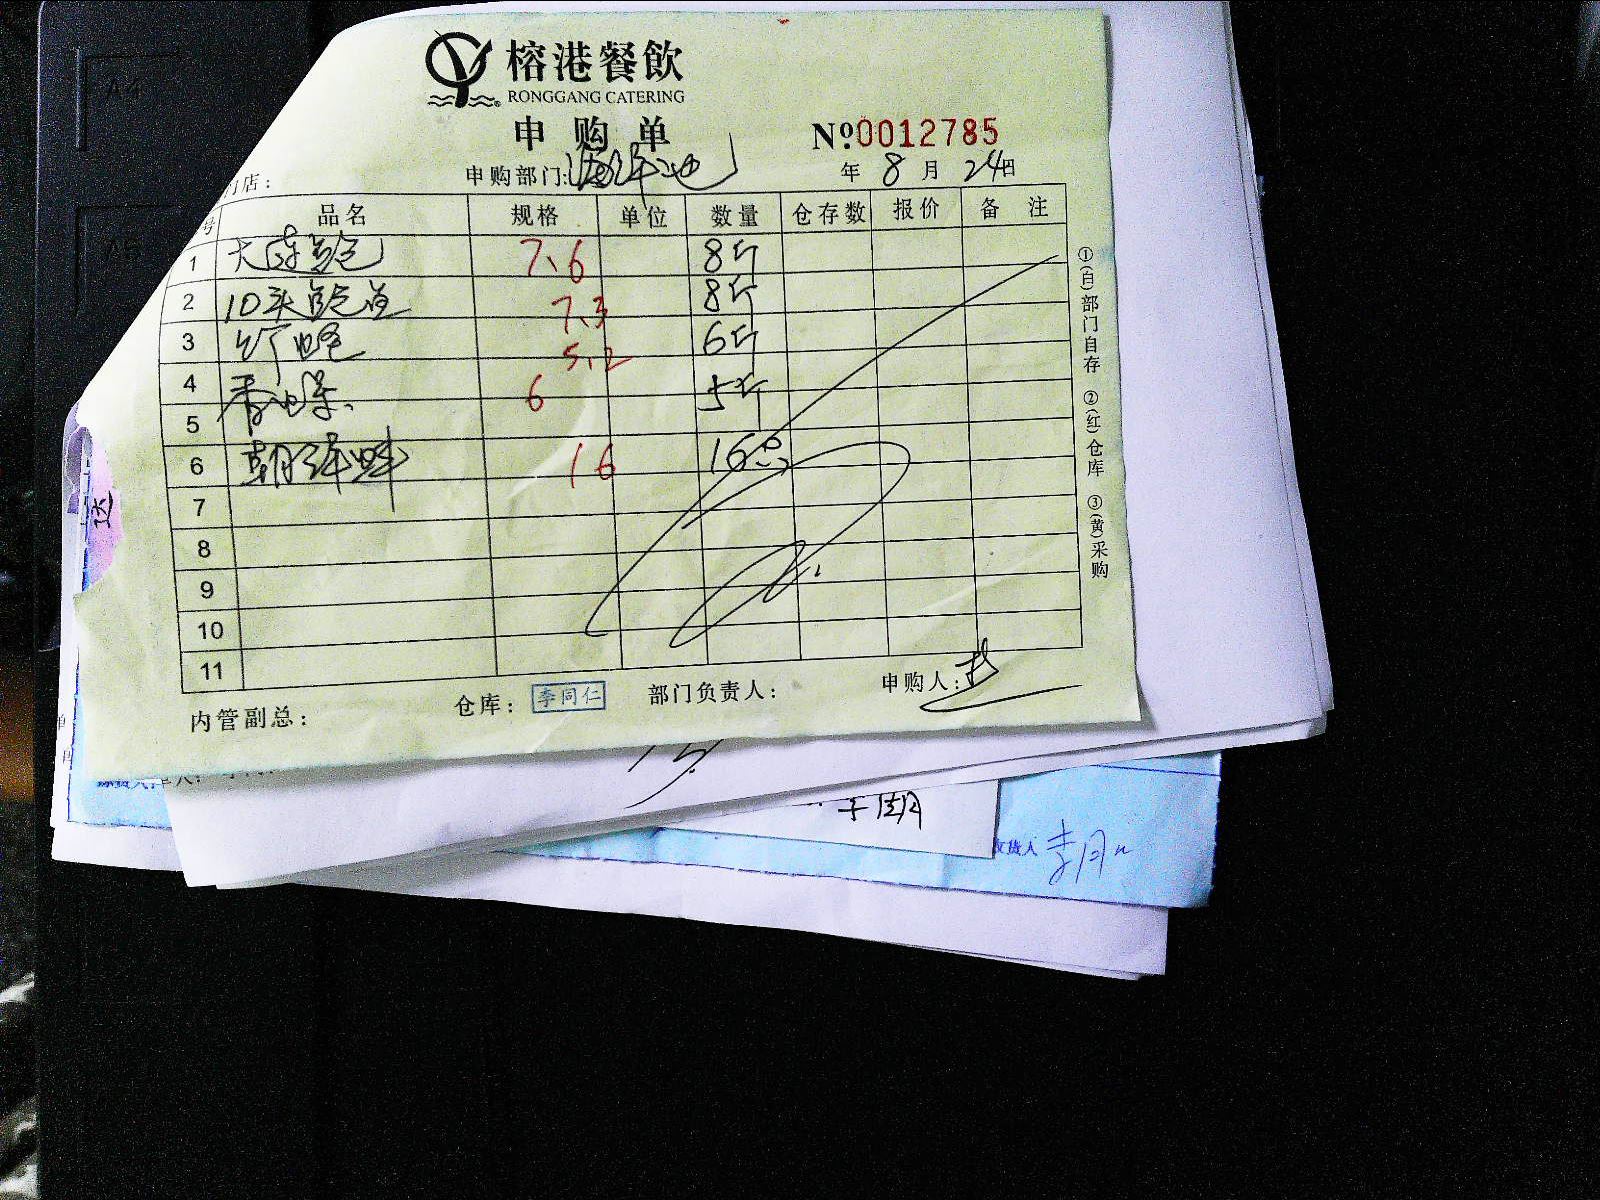 榕港餐飲
RONGGANG CATERING
申购单
№0012785
门店： 申购部门: 海鲜池 年 8 月 24日
号 品名 规格 单位 数量 仓存数 报价 备 注
1 大连鲍 7.6 8斤
2 10头鲍 7.3 8斤
3 5.2 6斤
4 6 5斤
5
6 16 16只
7
8
9
10
11
①(白)部门自存 ②(红)仓库 ③(黄)采购
内管副总： 仓库： 李同仁 部门负责人： 申购人：
达
收货人
A4
A5